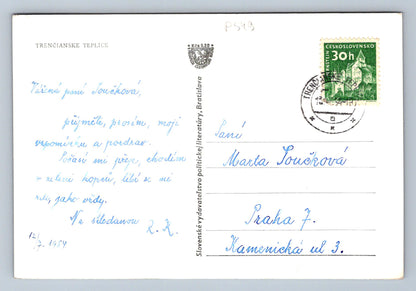 P543
TRENČIANSKE TEPLICE
ČESKOSLOVENSKO
30h
Vážená paní Součková,
přijměte, prosím, moji
vzpomínku a pozdrav.
Počasí mi přeje, chodím
líbí se mi
jako vždy.
Na shledanou
Z. K.
12/
7. 1964
Slovenské vydavateľstvo politickej literatúry, Bratislava
Paní
Marta Součková
Praha 7.
Kamenická ul 3.